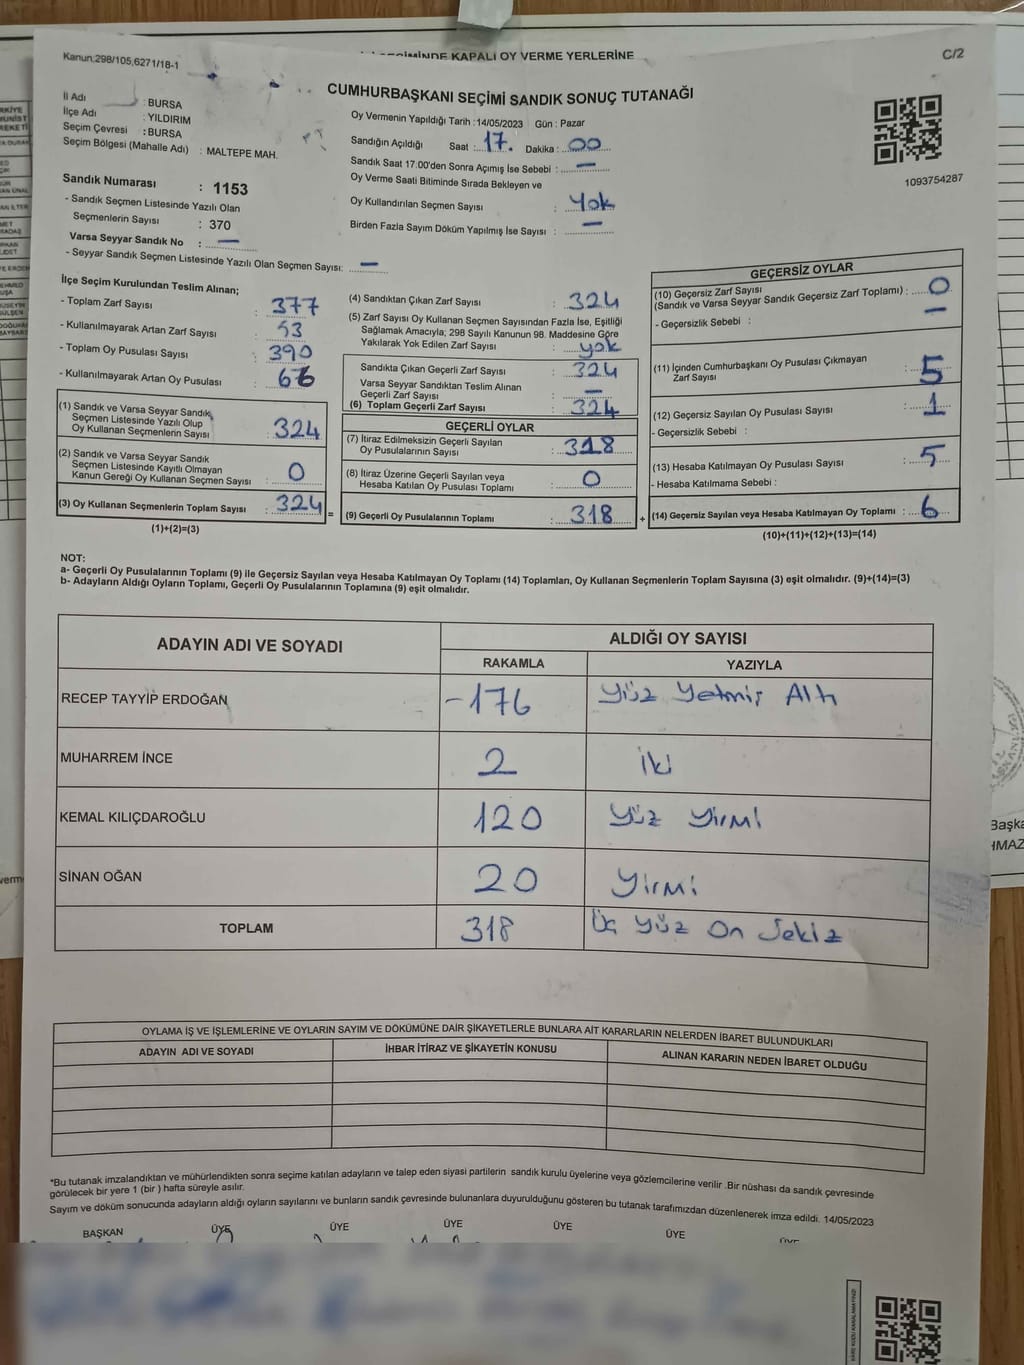 Kanun:298/105,6271/18-1
KAPALI OY VERME YERLERİNE
C/2
CUMHURBAŞKANI SEÇİMİ SANDIK SONUÇ TUTANAĞI
İl Adı : BURSA
İlçe Adı : YILDIRIM
Seçim Çevresi : BURSA
Seçim Bölgesi (Mahalle Adı) : MALTEPE MAH.
Sandık Numarası : 1153
- Sandık Seçmen Listesinde Yazılı Olan
Seçmenlerin Sayısı : 370
Varsa Seyyar Sandık No : —
- Seyyar Sandık Seçmen Listesinde Yazılı Olan Seçmen Sayısı: —
Oy Vermenin Yapıldığı Tarih :14/05/2023 Gün : Pazar
Sandığın Açıldığı Saat : 17. Dakika : 00
Sandık Saat 17:00'den Sonra Açımış İse Sebebi : —
Oy Verme Saati Bitiminde Sırada Bekleyen ve
Oy Kullandırılan Seçmen Sayısı : Yok
Birden Fazla Sayım Döküm Yapılmış İse Sayısı : —
1093754287
İlçe Seçim Kurulundan Teslim Alınan;
- Toplam Zarf Sayısı : 377
- Kullanılmayarak Artan Zarf Sayısı : 53
- Toplam Oy Pusulası Sayısı : 390
- Kullanılmayarak Artan Oy Pusulası : 66
(1) Sandık ve Varsa Seyyar Sandık
Seçmen Listesinde Yazılı Olup
Oy Kullanan Seçmenlerin Sayısı : 324
(2) Sandık ve Varsa Seyyar Sandık
Seçmen Listesinde Kayıtlı Olmayan
Kanun Gereği Oy Kullanan Seçmen Sayısı : 0
(3) Oy Kullanan Seçmenlerin Toplam Sayısı : 324
(1)+(2)=(3)
=
(4) Sandıktan Çıkan Zarf Sayısı : 324
(5) Zarf Sayısı Oy Kullanan Seçmen Sayısından Fazla İse, Eşitliği
Sağlamak Amacıyla; 298 Sayılı Kanunun 98. Maddesine Göre
Yakılarak Yok Edilen Zarf Sayısı : yok
Sandıkta Çıkan Geçerli Zarf Sayısı : 324
Varsa Seyyar Sandıktan Teslim Alınan
Geçerli Zarf Sayısı : —
(6) Toplam Geçerli Zarf Sayısı : 324
GEÇERLİ OYLAR
(7) İtiraz Edilmeksizin Geçerli Sayılan
Oy Pusulalarının Sayısı : 318
(8) İtiraz Üzerine Geçerli Sayılan veya
Hesaba Katılan Oy Pusulası Toplamı : 0
(9) Geçerli Oy Pusulalarının Toplamı : 318
+
GEÇERSİZ OYLAR
(10) Geçersiz Zarf Sayısı
(Sandık ve Varsa Seyyar Sandık Geçersiz Zarf Toplamı) : 0
- Geçersizlik Sebebi : —
(11) İçinden Cumhurbaşkanı Oy Pusulası Çıkmayan
Zarf Sayısı : 5
(12) Geçersiz Sayılan Oy Pusulası Sayısı : 1
- Geçersizlik Sebebi :
(13) Hesaba Katılmayan Oy Pusulası Sayısı : 5
- Hesaba Katılmama Sebebi :
(14) Geçersiz Sayılan veya Hesaba Katılmayan Oy Toplamı : 6
(10)+(11)+(12)+(13)=(14)
NOT:
a- Geçerli Oy Pusulalarının Toplamı (9) ile Geçersiz Sayılan veya Hesaba Katılmayan Oy Toplamı (14) Toplamları, Oy Kullanan Seçmenlerin Toplam Sayısına (3) eşit olmalıdır. (9)+(14)=(3)
b- Adayların Aldığı Oyların Toplamı, Geçerli Oy Pusulalarının Toplamına (9) eşit olmalıdır.
ADAYIN ADI VE SOYADI
ALDIĞI OY SAYISI
RAKAMLA YAZIYLA
RECEP TAYYİP ERDOĞAN -176 Yüz Yetmiş Altı
MUHARREM İNCE 2 iki
KEMAL KILIÇDAROĞLU 120 Yüz Yirmi
SİNAN OĞAN 20 Yirmi
TOPLAM 318 Üç Yüz On Sekiz
OYLAMA İŞ VE İŞLEMLERİNE VE OYLARIN SAYIM VE DÖKÜMÜNE DAİR ŞİKAYETLERLE BUNLARA AİT KARARLARIN NELERDEN İBARET BULUNDUKLARI
ADAYIN ADI VE SOYADI İHBAR İTİRAZ VE ŞİKAYETİN KONUSU ALINAN KARARIN NEDEN İBARET OLDUĞU
*Bu tutanak imzalandıktan ve mühürlendikten sonra seçime katılan adayların ve talep eden siyasi partilerin sandık kurulu üyelerine veya gözlemcilerine verilir .Bir nüshası da sandık çevresinde
görülecek bir yere 1 (bir ) hafta süreyle asılır.
Sayım ve döküm sonucunda adayların aldığı oyların sayılarını ve bunların sandık çevresinde bulunanlara duyurulduğunu gösteren bu tutanak tarafımızdan düzenlenerek imza edildi. 14/05/2023
BAŞKAN ÜYE ÜYE ÜYE ÜYE ÜYE ÜYE